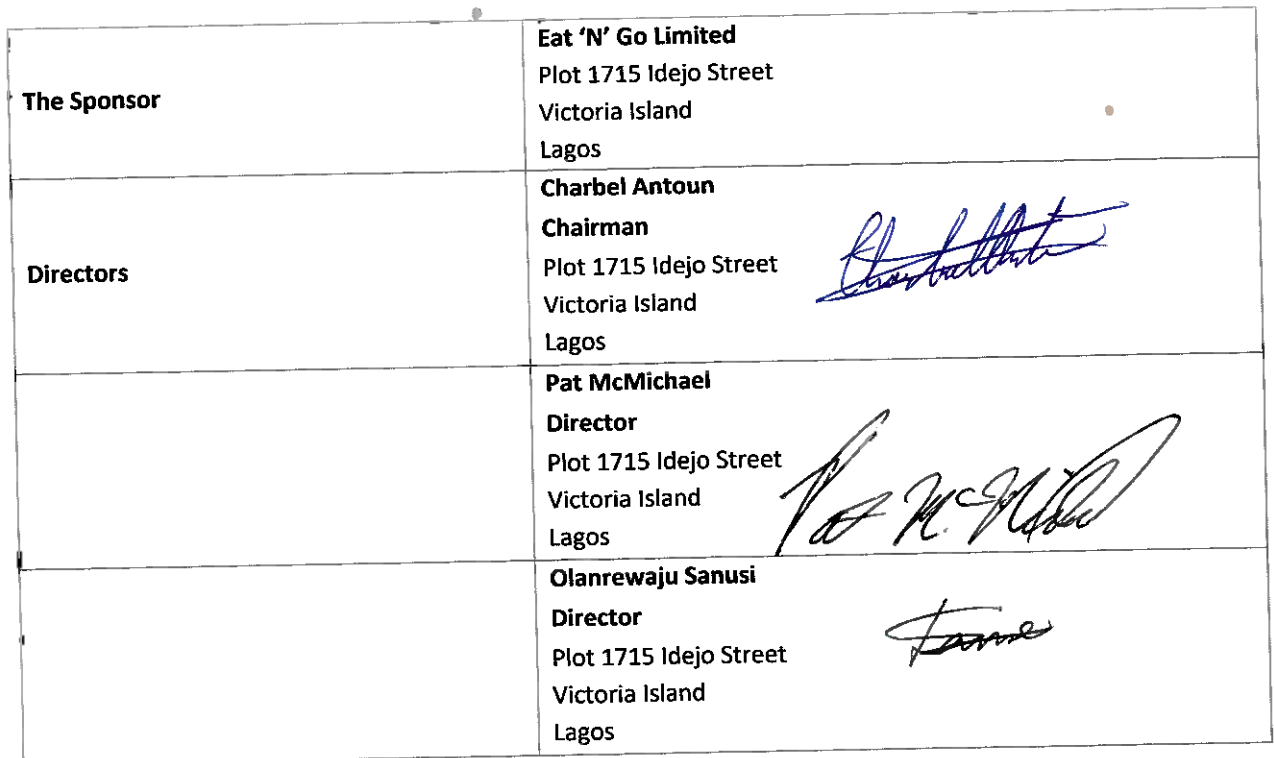 The Sponsor
Eat ‘N’ Go Limited
Plot 1715 Idejo Street
Victoria Island
Lagos
Directors
Charbel Antoun
Chairman
Plot 1715 Idejo Street
Victoria Island
Lagos
Pat McMichael
Director
Plot 1715 Idejo Street
Victoria Island
Lagos
Olanrewaju Sanusi
Director
Plot 1715 Idejo Street
Victoria Island
Lagos